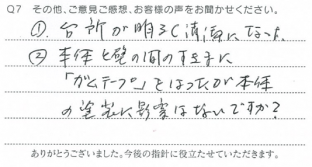 Q7 その他、ご意見ご感想、お客様の声をお聞かせください。
①. 台所が明るく清潔になった
② 本体と壁の間のすきまに
「ガムテープ」をはったが本体
の塗装に影響はないですか?
ありがとうございました。今後の指針に役立たせていただきます。